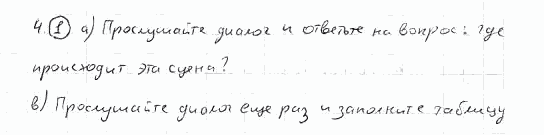 4. ① а) Прослушайте диалог и ответьте на вопрос: где
происходит эта сцена?
в) Прослушайте диалог еще раз и заполните таблицу